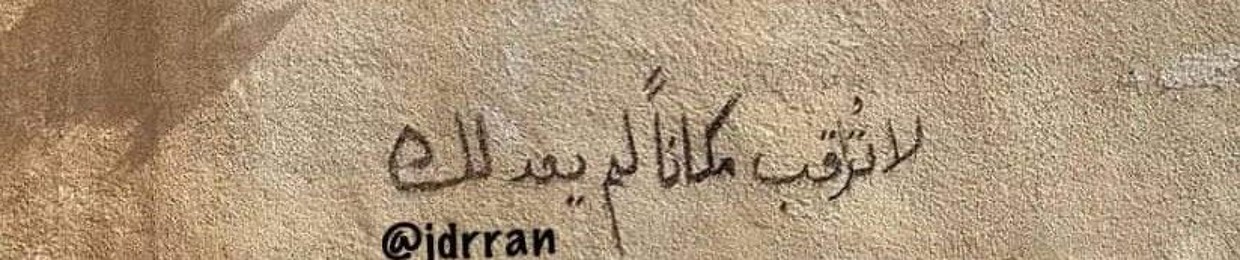 لا تُرقب مكاناً لم يعد لك
@jdrran